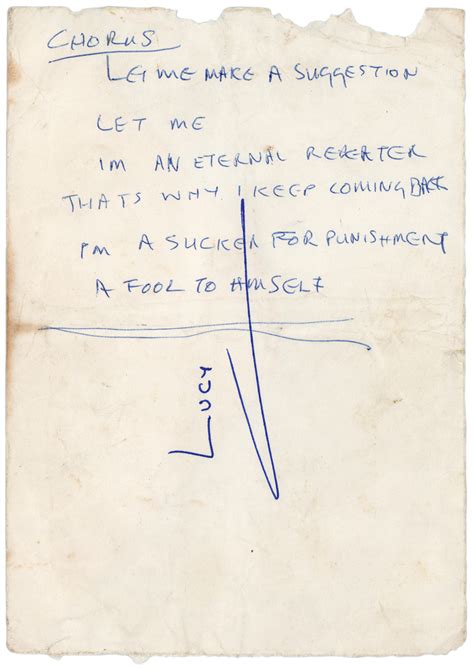 CHORUS
LET ME MAKE A SUGGESTION
LET ME
IM AN ETERNAL REPEATER
THATS WHY I KEEP COMING BACK
I'M A SUCKER FOR PUNISHMENT
A FOOL TO HIMSELF
LUCY